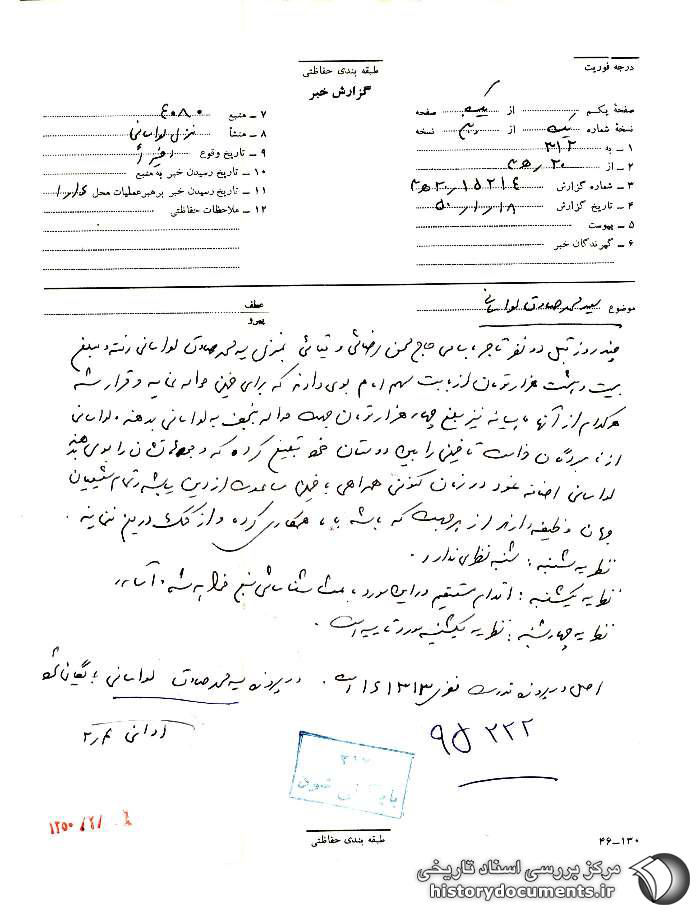 درجه فوریت
طبقه بندی حفاظتی
گزارش خبر
صفحهٔ یکم از یک صفحه
نسخهٔ شماره یک از پنج نسخه
۱ ـ به ۳۱۲
۲ ـ از ۲۰ هـ
۳ ـ شماره گزارش ۱۵۲۱۴ / ۲۰ هـ ۳
۴ ـ تاریخ گزارش ۵۰/۱/۱۸
۵ ـ پیوست
۶ ـ گیرندگان خبر
۷ ـ منبع ۴۰۸۰
۸ ـ منشأ منزل لواسانی
۹ ـ تاریخ وقوع اخیراً
۱۰ ـ تاریخ رسیدن خبر به منبع
۱۱ ـ تاریخ رسیدن خبر برهبر عملیات محل
۱۲ ـ ملاحظات حفاظتی
موضوع سید محمد صادق لواسانی
عطف
پیرو
چند روز قبل دو نفر تاجر باسامی حاج حسن رضائی و بمنزل سید محمد صادق لواسانی رفته و مبلغ
بیست و هشت هزار تومان از بابت سهم امام بوی دادند که برای خمینی حواله نماید و قرار شد
هر کدام از آنها ماهیانه نیز مبلغ چهار هزار تومان جهت حواله نجف به لواسانی بدهند. لواسانی
از نامبردگان خواست تا خمینی را بین دوستان خود تبلیغ کرده که وجوهاتشان را بوی بدهند
لواسانی اضافه نمود در زمان کنونی همراهی با خمینی مساعدت از دین میباشد و تمام شیعیان
جهان وظیفه دارند از هر جهت که باشد با او همکاری کرده و از کمک دریغ ننمایند.
نظریه شنبه: شنبه نظری ندارد.
نظریه یکشنبه: اقدام مستقیم در این مورد باعث شناسائی منبع خواهد شد.
نظریه چهارشنبه: نظریه یکشنبه مورد تایید است.
اصل در پرونده ۱۶۱۳۱۳ است. در پرونده سید محمد صادق لواسانی بایگانی شود
۹ل ۲۲۲
۳۱۲
بایگانی شود
۱۳۵۰/۲/
طبقه بندی حفاظتی
۴۶ـ۱۳۰
مرکز بررسی اسناد تاریخی
historydocuments.ir